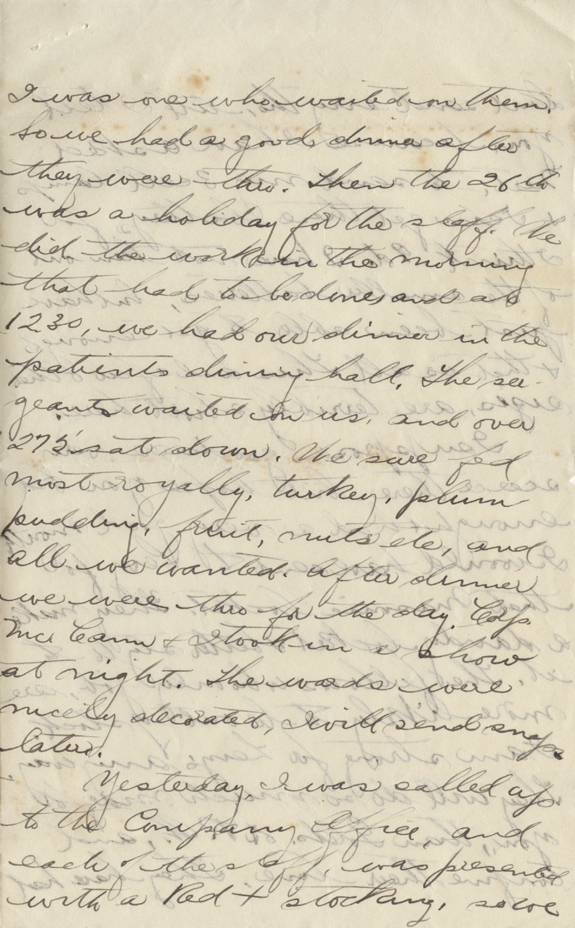 I was one who waited on them.
So we had a good dinner after
they were thro. Then the 26th
was a holiday for the staff. We
did the work in the morning
that had to be done, and at
1230, we had our dinner in the
patients dinning hall. The ser-
geants waited on us, and over
275 sat down. We sure fed
most royally, turkey, plum
pudding, fruit, nuts etc, and
all we wanted. After dinner
we were thro for the day. Corp
McCann & I took in a show
at night. The wards were
nicely decorated, I will send snaps
later.
Yesterday I was called up
to the Company Office, and
each of the staff, was presented
with a Red + stocking, so we